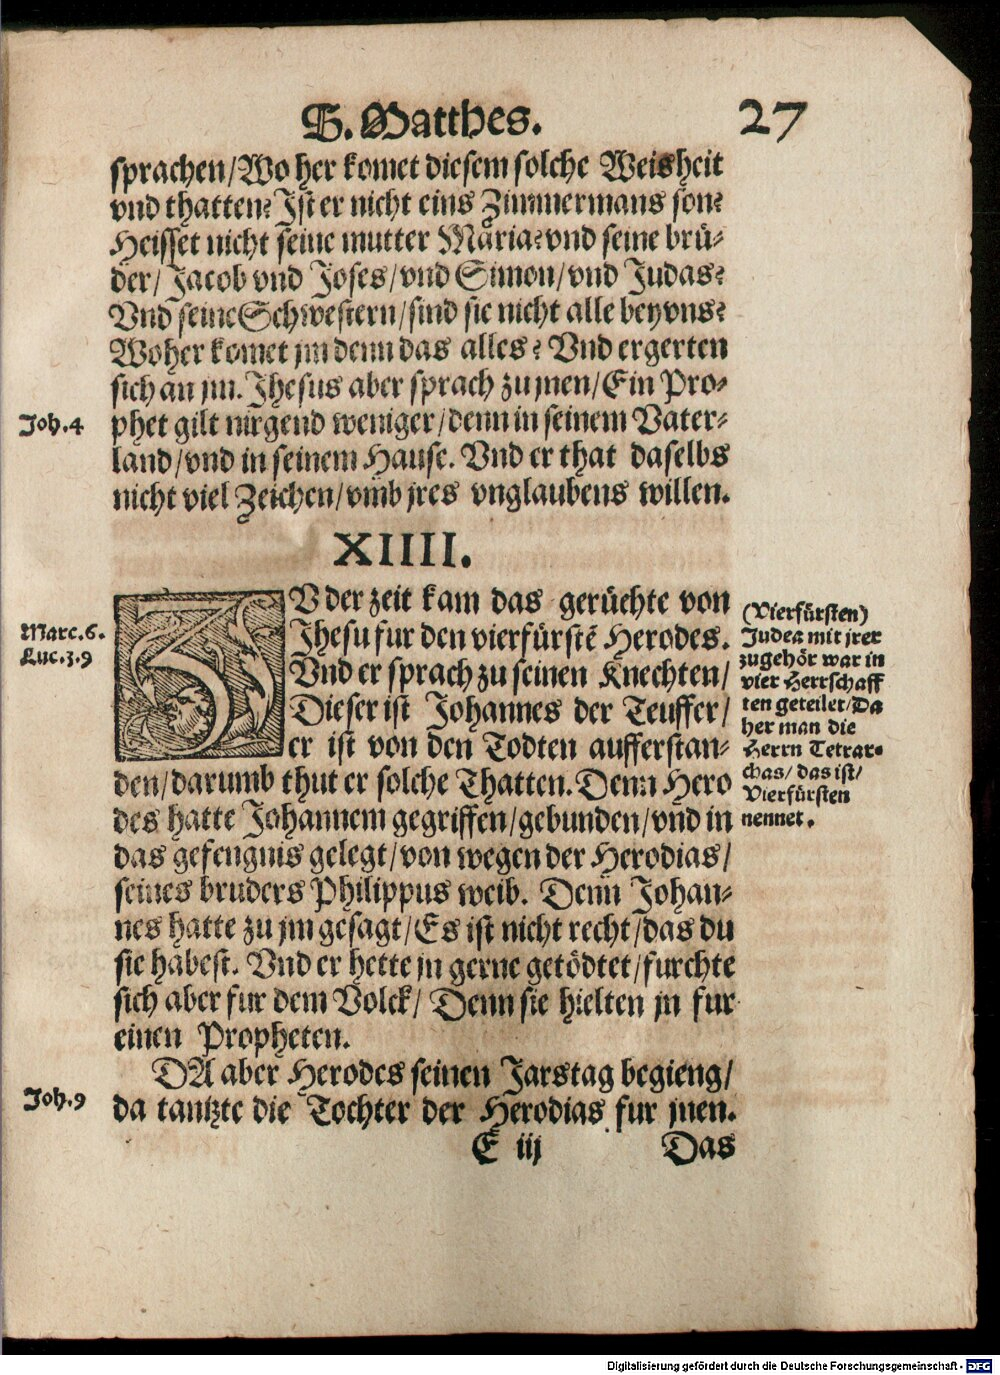 S. Matthes. 27
sprachen/Wo her komet diesem solche Weisheit
vnd thatten? Ist er nicht eins Zimmermans son?
Heisset nicht seine mutter Maria? vnd seine brü-
der/ Jacob vnd Joses/ vnd Simon/ vnd Judas?
Vnd seine Schwestern/ sind sie nicht alle bey vns?
Woher komet jm denn das alles? Vnd ergerten
sich an jm. Jhesus aber sprach zu jnen/ Ein Pro-
Joh. 4
phet gilt nirgend weniger/ denn in seinem Vater-
land/ vnd in seinem Hause. Vnd er that daselbs
nicht viel Zeichen/ vmb jres vnglaubens willen.
XIIII.
ZV der zeit kam das gerüchte von
Jhesu fur den vierfürstē Herodes.
Vnd er sprach zu seinen Knechten/
Dieser ist Johannes der Teuffer/
er ist von den Todten aufferstan-
den/ darumb thut er solche Thatten. Denn Hero
des hatte Johannem gegriffen/ gebunden/ vnd in
das gefengnis gelegt/ von wegen der Herodias/
seines bruders Philippus weib. Denn Johan-
nes hatte zu jm gesagt/ Es ist nicht recht/ das du
sie habest. Vnd er hette jn gerne getödtet/ furchte
sich aber fur dem Volck/ Denn sie hielten jn fur
einen Propheten.
DA aber Herodes seinen Jarstag begieng/
da tantzte die Tochter der Herodias fur jnen.
E iij Das
Marc. 6.
Luc. 3. 9
Joh. 9
(Vierfürsten)
Judea mit jrer
zugehör war in
vier Herrschaff
ten geteilet/ Da
her man die
Herrn Tetrar-
chas/ das ist/
Vierfürsten
nennet.
Digitalisierung gefördert durch die Deutsche Forschungsgemeinschaft - DFG